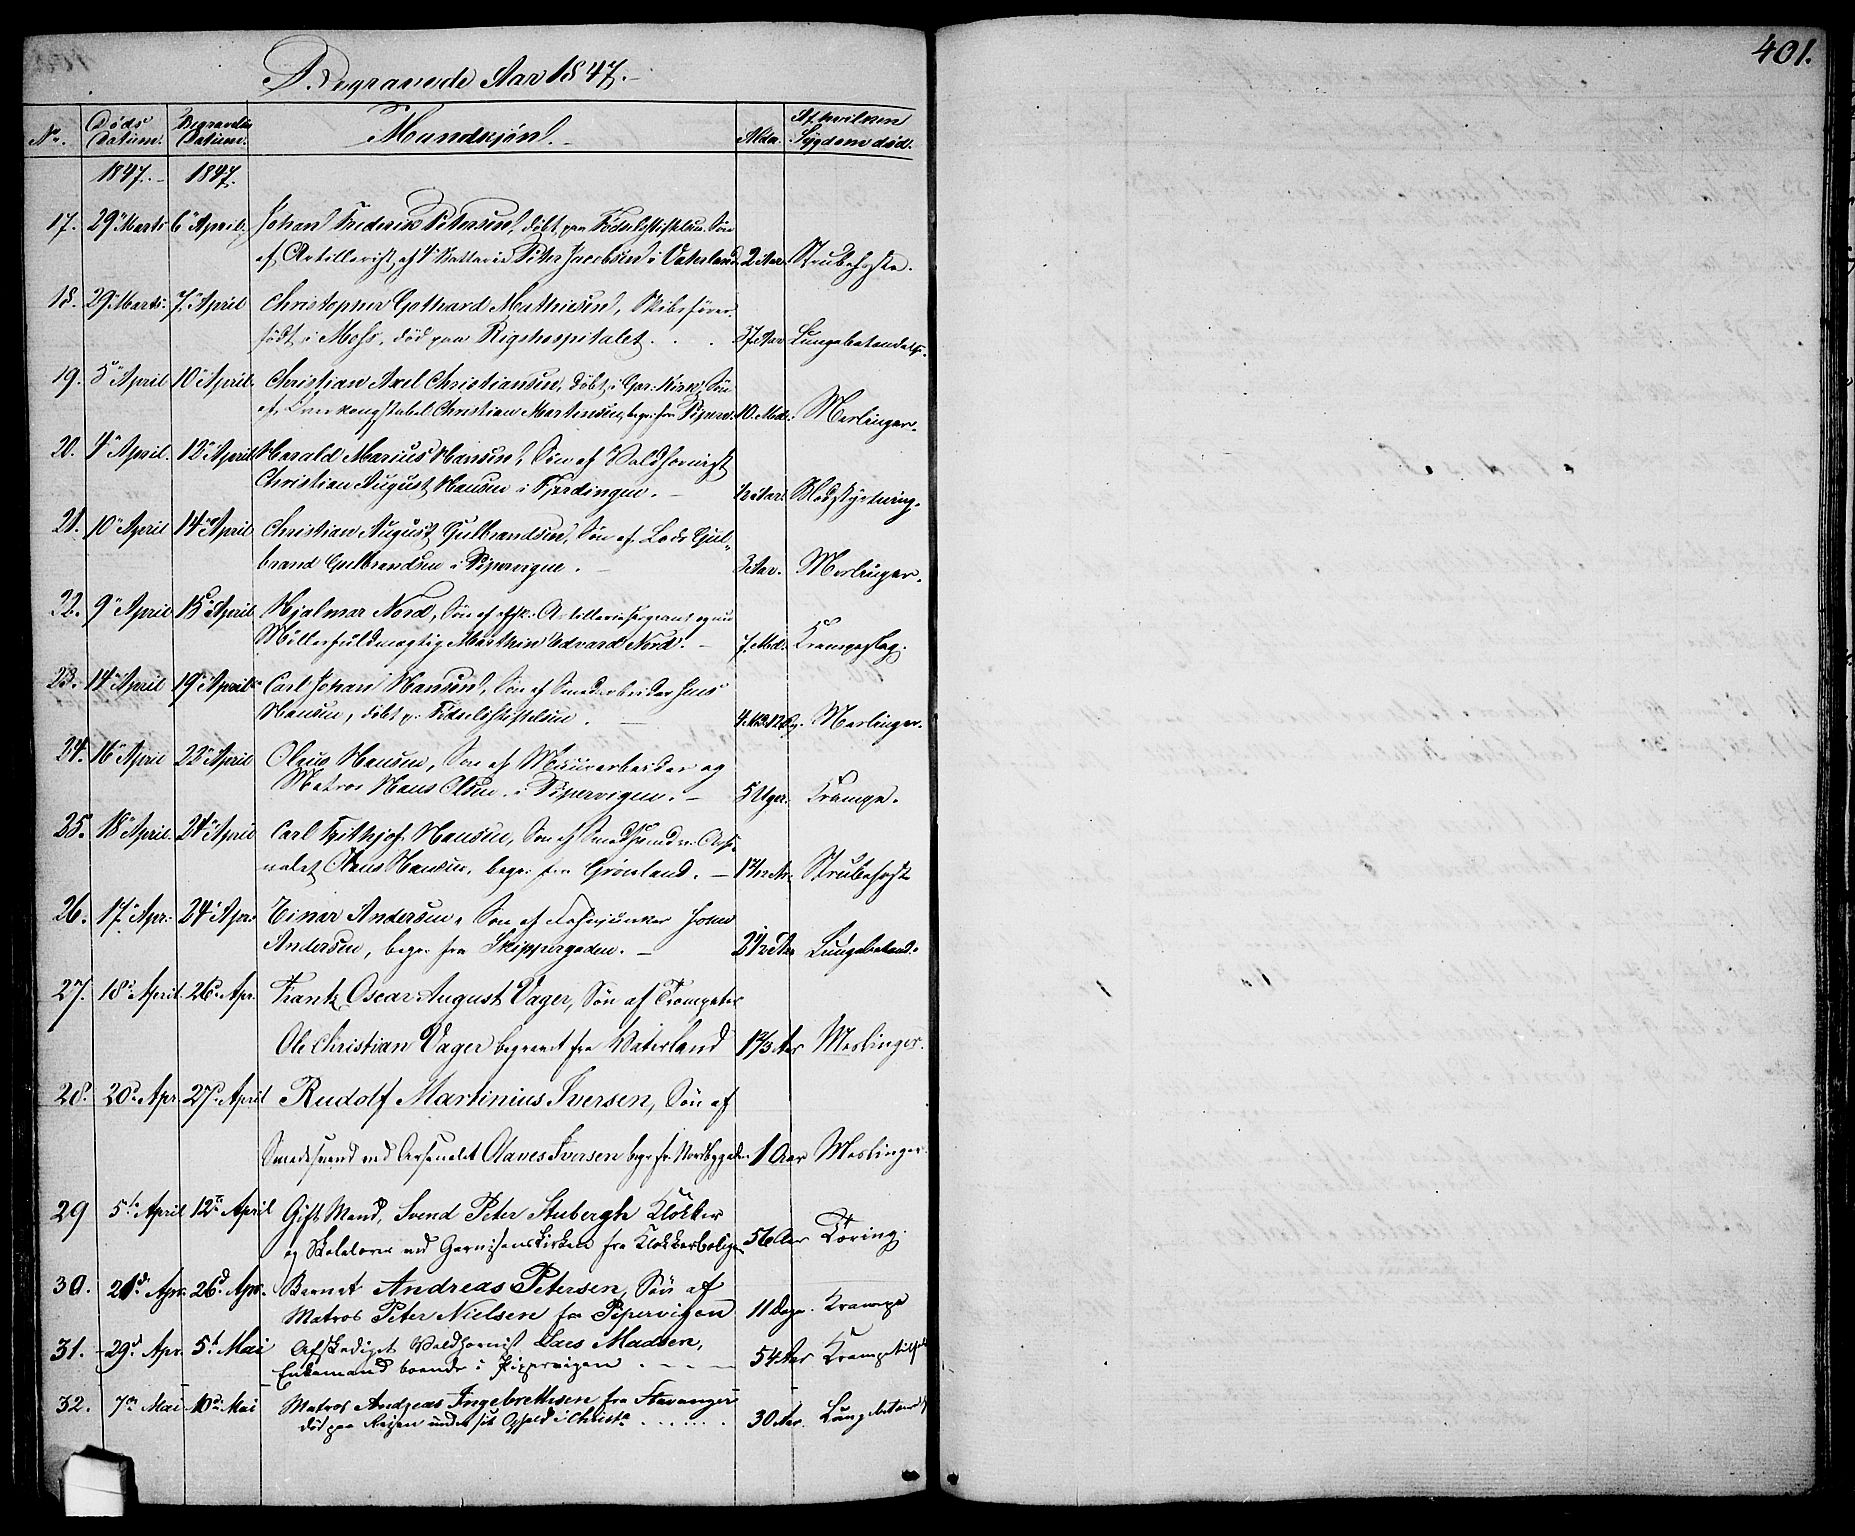 401.
Begravede Aar 1847.
No. Døds Datum. Begravelse Datum. Mandkjøn. Alder. Af hvilken Sygdom død.
1847. 1847.
17. 29 Marts 6 April. Johan Frederik Petersen, døbt paa Fødselsstiftelsen. Søn
af Artillerist af 4 Batterie Peter Jacobsen i Vaterland 2 Aar. Strubehoste.
18. 29 Marts. 7 April Christopher Gothard Mathiesen, Skibsfører.
født i Moss, død paa Rigshospitalet. . . 37 Aar Lungebetændelse.
19. 5 April 10 April. Christian Axel Christiansen, døbt i Gar: Kirke, Søn
af Christian Martinsen, begr: fra Piperv. 10 Md. Meslinger.
20. 4 April. 12 April Harald Marius Hansen, Søn af Valdhornist
Christian August Hansen i Fjerdingen. 1/2 Aar. Blodstyrtning.
21. 10 April 14 April Christian August Gulbrandsen, Søn af Lods Gul-
brand Gulbrandsen i Pipervigen. 3 Aar. Meslinger.
22. 9 April 15 April Hjalmar Nord, Søn af afsk: Artillerisergeant og nu
Møllerfuldmægtig Marthin Edvard Nord. 7 Md. Krampeslag.
23. 14 April 19 April Carl Johan Hansen, Søn af Smedarbeider Jens
Hansen, døbt p. Fødselsstiftelsen. Meslinger.
24. 16 April 22 April Olaus Hansen, Søn af Muurarbeider og
Matros Hans Olsen. i Pipervigen. 5 Uger. Krampe.
25. 18 April. 24 April Carl Frithjof Hansen, Søn af Smedsvend v. Arse-
nalet Olaus Hansen, begr. fra Grønland. Strubehoste
26. 17 Apr: 24 Apr: Einar Andersen, Søn af John
Andersen, begr. fra Skippergaden. 2 1/2 Aar Lungebetænd.
27. 18 April. 26 Apr. Frantz Oscar August Vager, Søn af Trompeter
Ole Christian Vager begravet fra Vaterland 1 2/3 Aar Meslinger.
28. 20 Apr. 27 April Rudolf Martinius Iversen, Søn af
Smedesvend ved Arsenalet Olaves Iversen begr. fr. Nordbygaden 1 Aar Meslinger.
29 5 April 12 April Gift Mand, Svend Peter Stubergh Klokker
og Skolelærer ved Garnisonskirken fra Klokkerboligen 56 Aar Tæring.
30. 21 Apr. 26 Apr. Barnet Andreas Petersen, Søn af
Matros Peter Nielsen fra Pipervigen 11 Dage. Krampe
31. 29 Apr. 5 Mai Afskediget Valdhornist Lars Madsen,
Enkemand boende i Pipervigen . - - - 54 Aar Krampetilfælde
32. 7 Mai 10 Mai Matros Andreas Ingebrethsen fra Stavanger
død paa Reisen under sit Ophold i Christa . . . . . . . 30 Aar. Lungebetænd